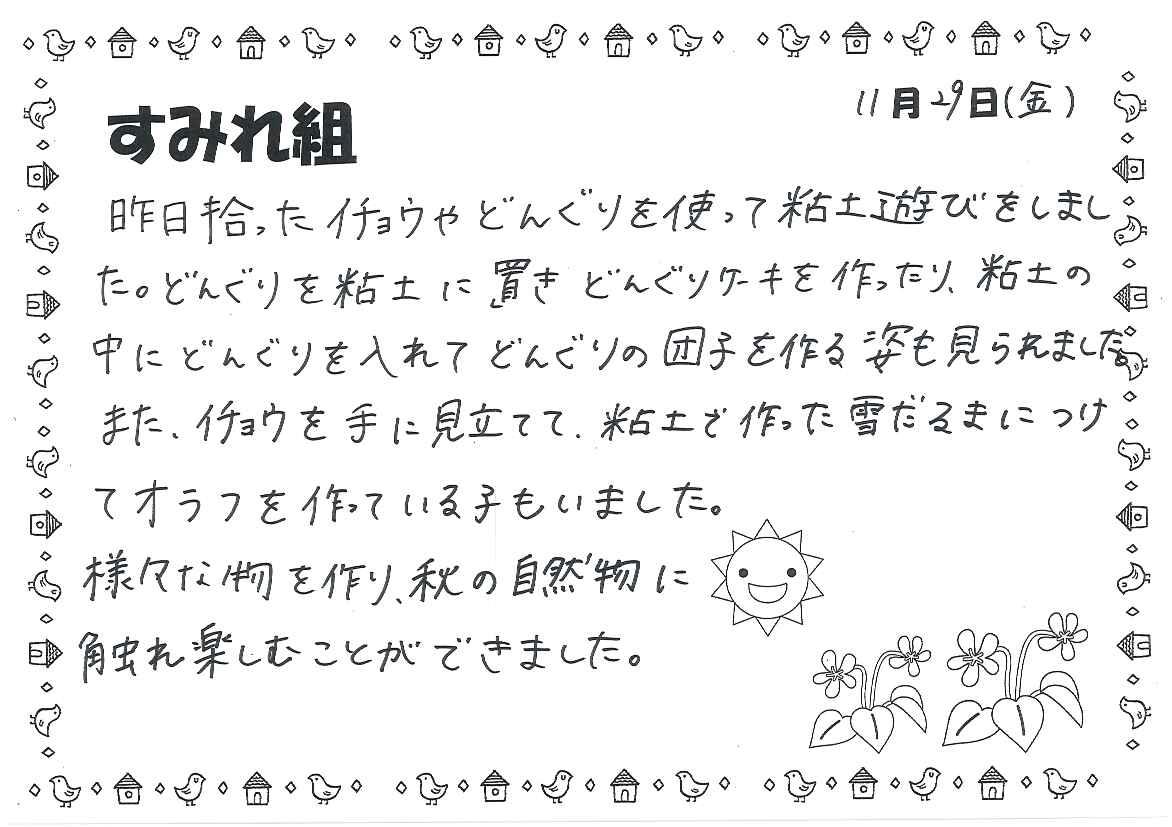 すみれ組
11月29日(金)
昨日拾ったイチョウやどんぐりを使って粘土遊びをしまし
た。どんぐりを粘土に置きどんぐりケーキを作ったり、粘土の
中にどんぐりを入れてどんぐりの団子を作る姿も見られました。
また、イチョウを手に見立てて、粘土で作った雪だるまにつけ
てオラフを作っている子もいました。
様々な物を作り、秋の自然物に
触れ楽しむことができました。